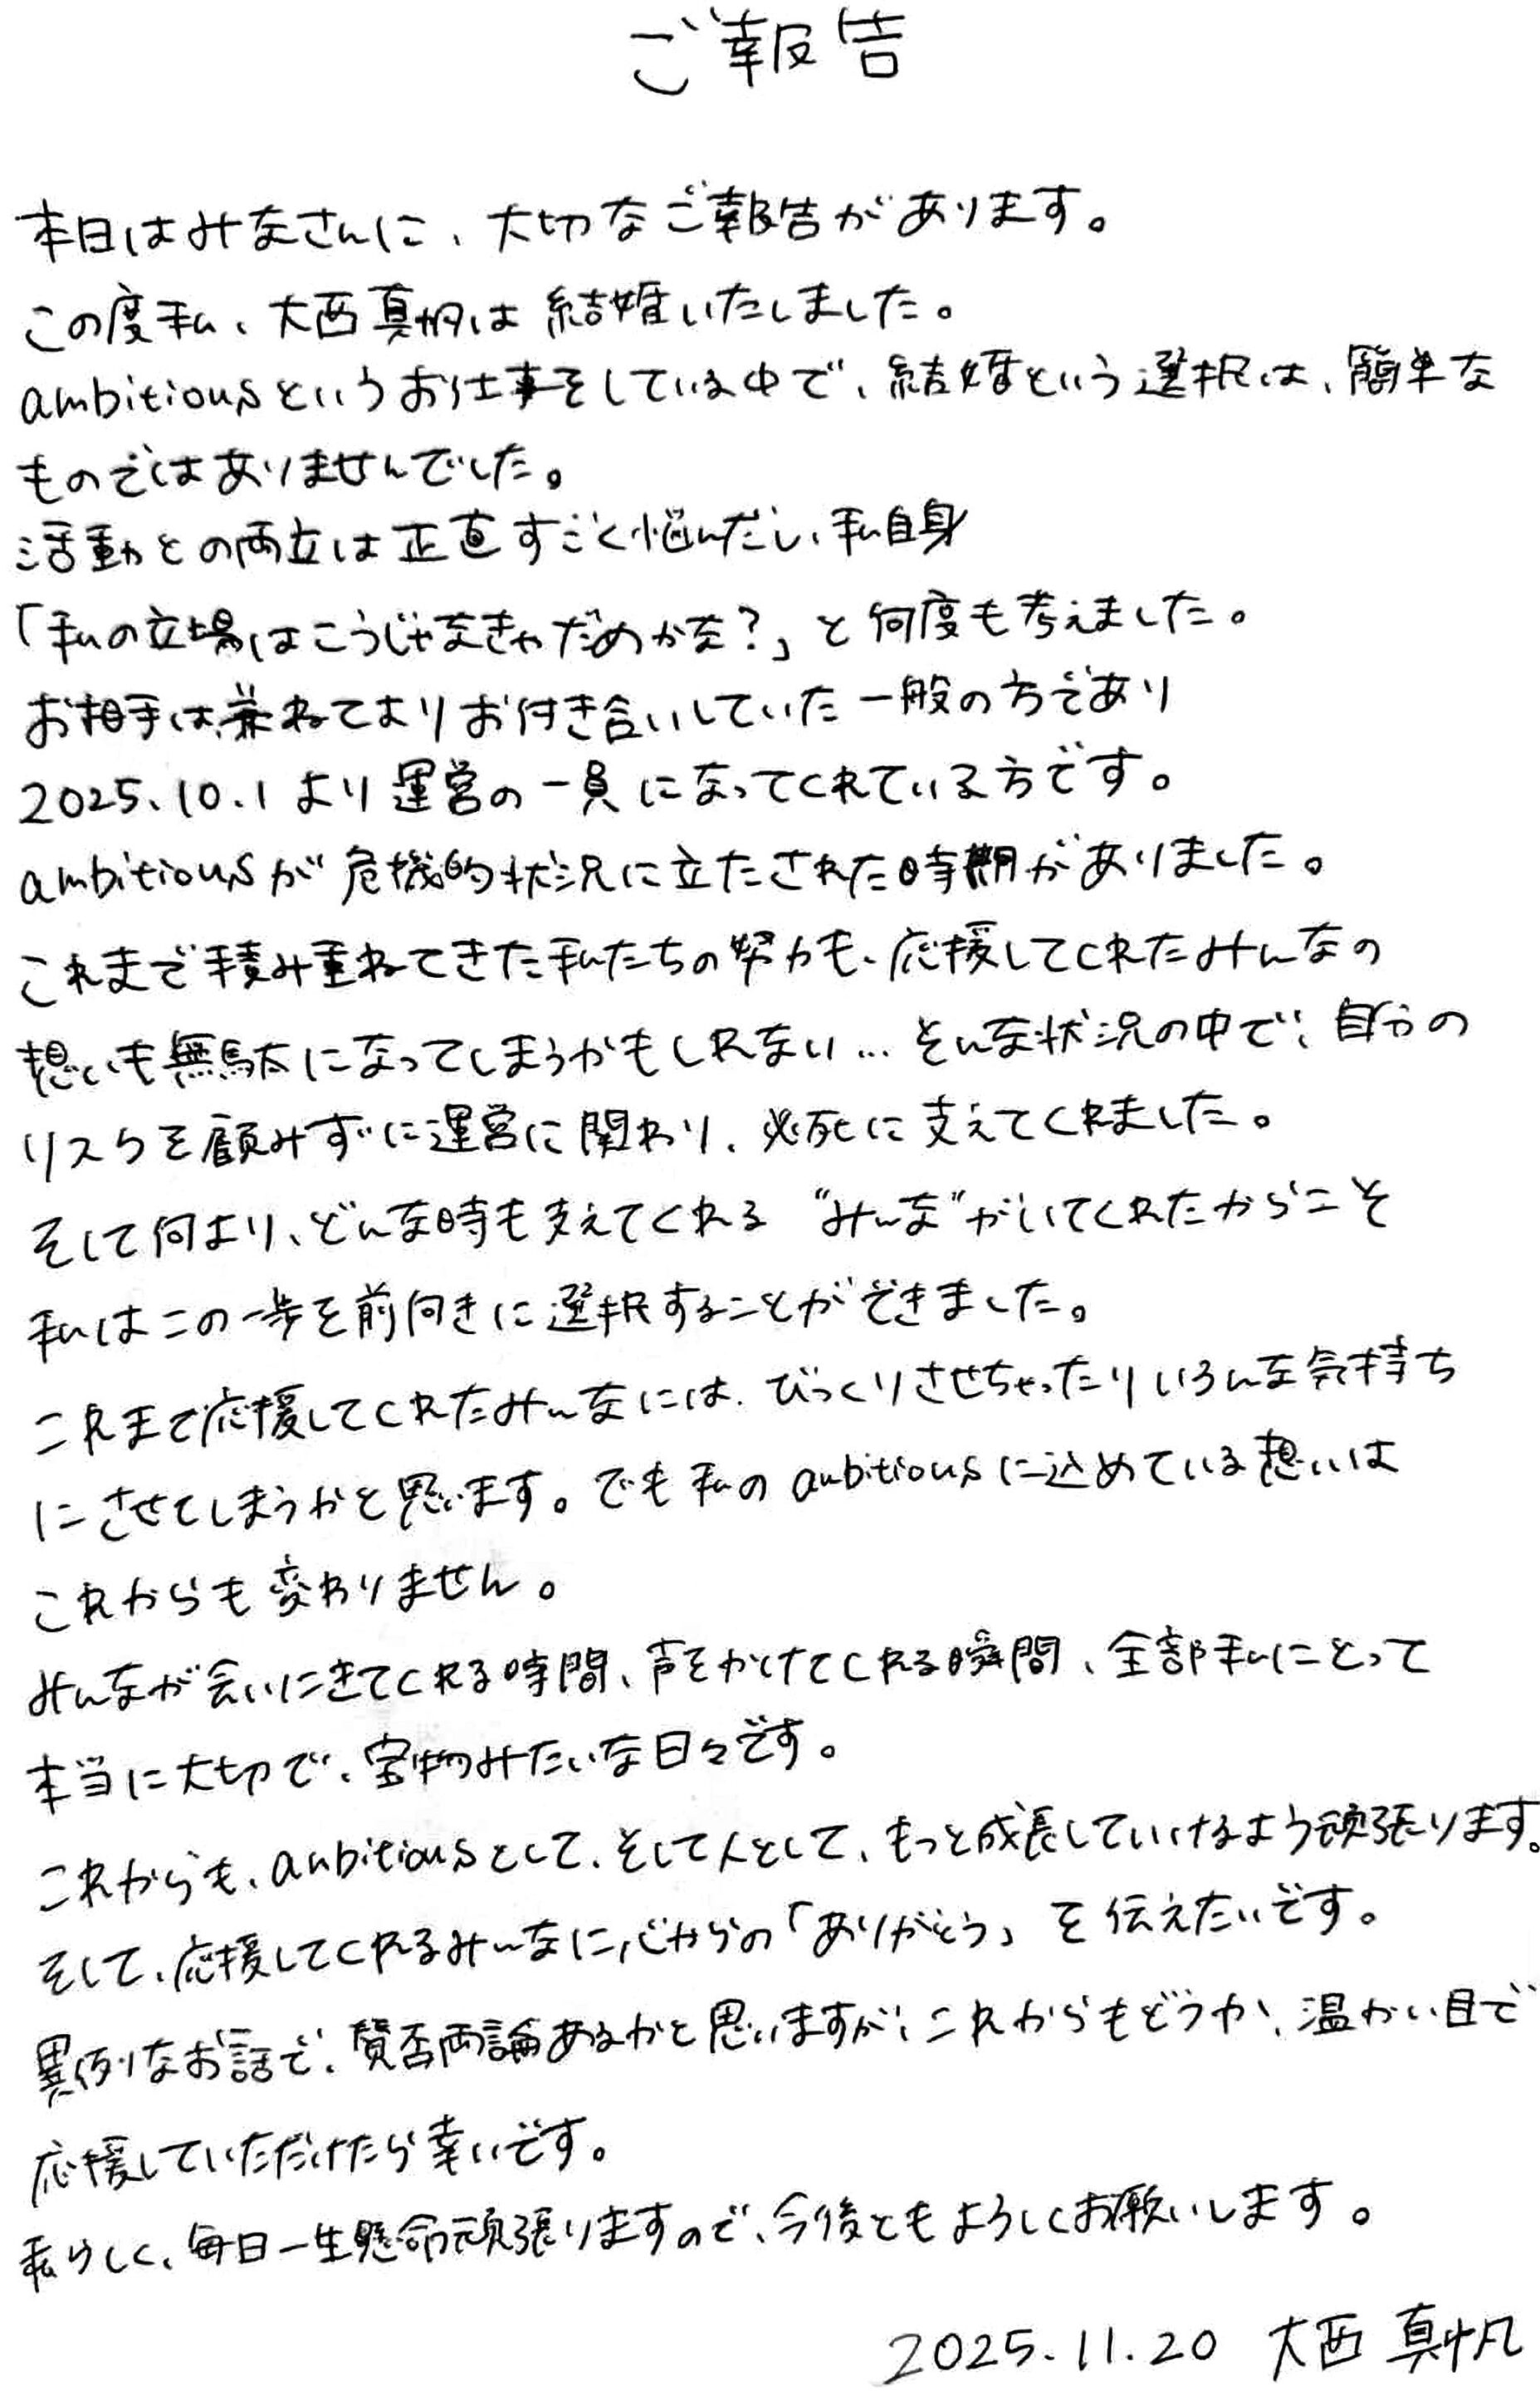 ご報告
本日はみなさんに、大切なご報告があります。
この度私、大西真帆は結婚いたしました。
ambitiousというお仕事をしている中で、結婚という選択は、簡単な
ものではありませんでした。
活動との両立は正直すごく悩んだし、私自身
「私の立場はこうじゃなきゃだめかな？」と何度も考えました。
お相手は、兼ねてよりお付き合いしていた一般の方であり
2025.10.1より運営の一員になってくれている方です。
ambitiousが危機的状況に立たされた時期がありました。
これまで積み重ねてきた私たちの努力も、応援してくれたみんなの
想いも無駄になってしまうかもしれない…そんな状況の中で、自分の
リスクを顧みずに運営に関わり、必死に支えてくれました。
そして何より、どんな時も支えてくれる“みんな”がいてくれたからこそ
私はこの一歩を前向きに選択することができました。
これまで応援してくれたみんなには、びっくりさせちゃったりいろんな気持ち
にさせてしまうかと思います。でも私のambitiousに込めている想いは
これからも変わりません。
みんなが会いにきてくれる時間、声をかけてくれる瞬間、全部私にとって
本当に大切で、宝物みたいな日々です。
これからも、ambitiousとして、そして人として、もっと成長していけるよう頑張ります。
そして、応援してくれるみんなに、心からの「ありがとう」を伝えたいです。
異例なお話で、賛否両論あるかと思いますが、これからもどうか、温かい目で
応援していただけたら幸いです。
私らしく、毎日一生懸命頑張りますので、今後ともよろしくお願いします。
2025.11.20 大西 真帆